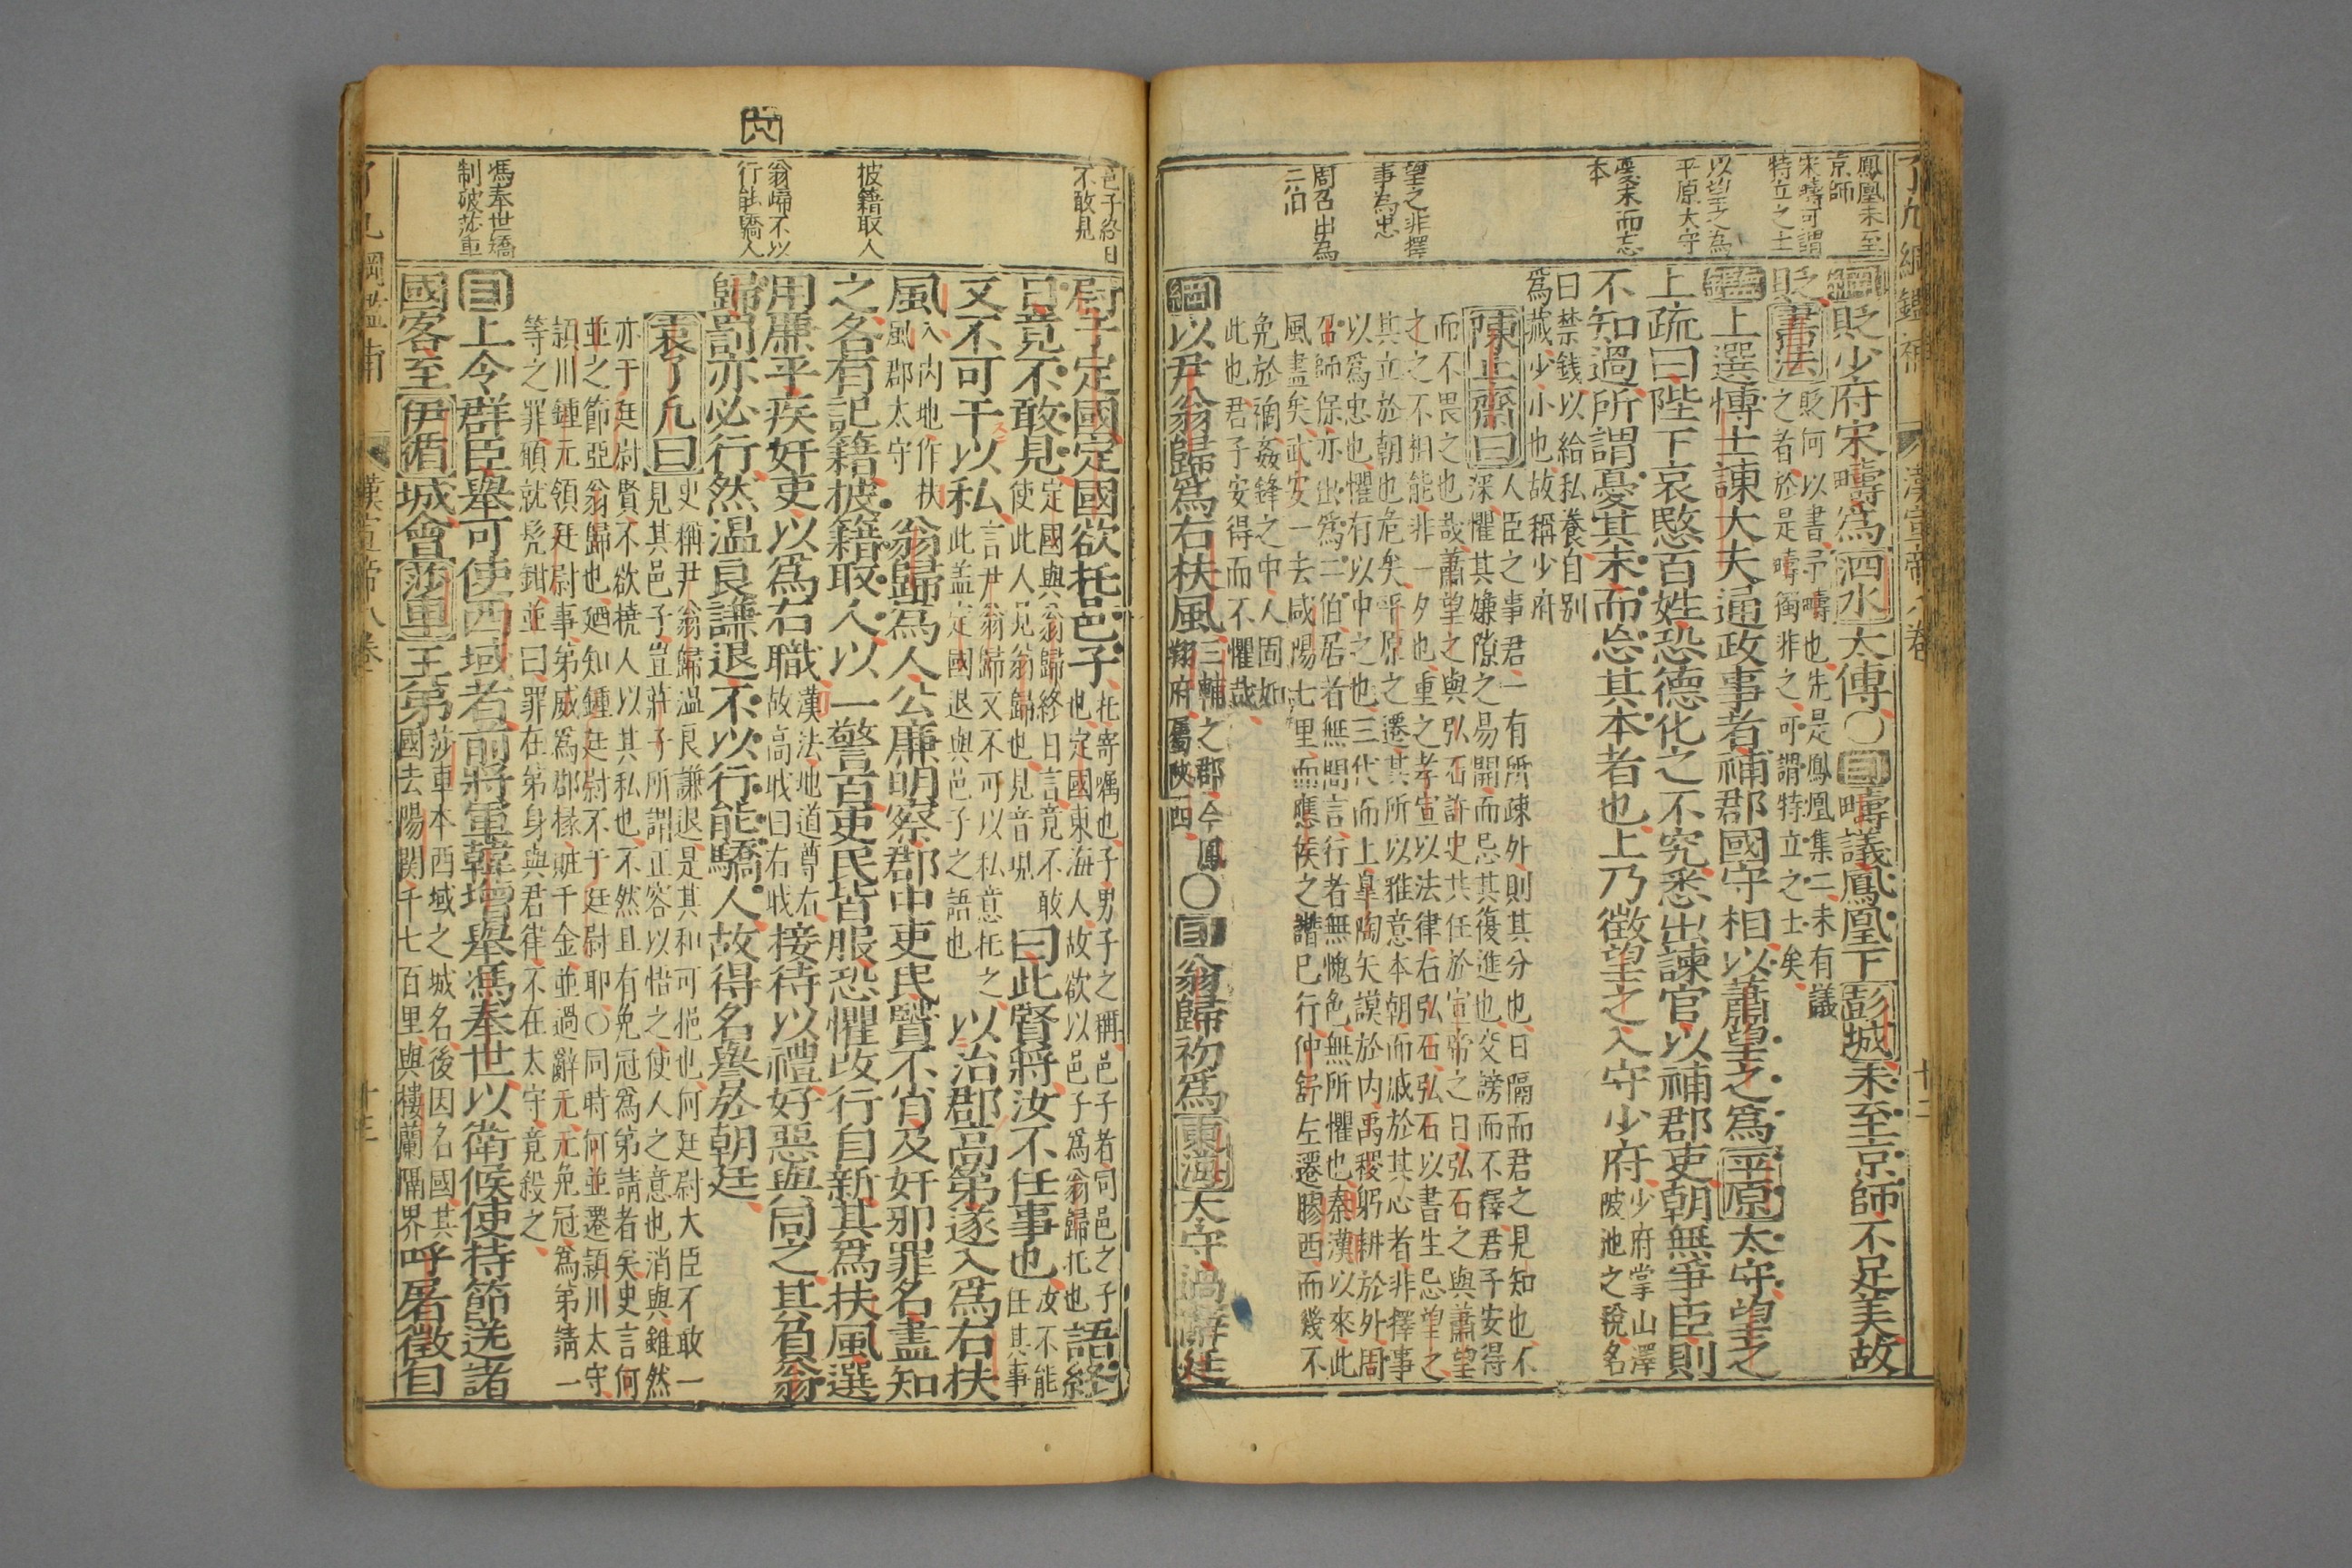 鳳凰未至
京師
宋疇可謂
特立之士
以望之為
平原太守
憂末而忘
本
望之非擇
事為忠
周召出為
二伯
綱貶少府宋疇爲泗水太傅○目疇議鳳凰下彭城未至京師不足美故
貶書法貶何以書予疇也先是鳳凰集二未有議
之者於是疇獨非之可謂特立之士矣
鑑上選博士諫大夫通政事者補郡國守相以蕭望之爲平原太守望之
上疏曰陛下哀愍百姓恐德化之不究悉出諫官以補郡吏朝無爭臣則
不知過所謂憂其末而忘其本者也上乃徵望之入守少府少府掌山澤
陂池之稅名
曰禁錢以給私養自別
爲藏少小也故稱少府
陳止齋曰人臣之事君一有所疎外則其分也日隔而君之見知也不
深懼其嫌隙之易開而忌其復進也交謗而不釋君子安得
而不畏之也哉蕭望之與弘石許史共任於宣帝之日弘石之與蕭望
之之不相能非一夕也重之孝宣以法律右弘石弘石以書生忌望之
其立於朝也危矣平原之遷其所以雅意本朝而戚於其心者非擇事
以爲忠也懼有以中之也三代而上皐陶矢謨於内禹稷躬耕於外周
召師保亦出爲二伯居者無間言行者無愧色無所懼也秦漢以來此
風盡矣武安一去咸陽七里而應侯之譖已行仲舒左遷膠西而幾不
免於禍姦鋒之中人固如
此也君子安得而不懼哉
綱以尹翁歸爲右扶風三輔之郡今鳳
翔府屬陝西○目翁歸初爲東海太守過辭廷
了凡綱鑑補 漢宣帝八卷 十二
邑子終日
不敢見
披籍取人
翁歸不以
行能驕人
馮奉世矯
制破莎車
尉于定國定國欲托邑子托寄囑也子男子之稱邑子者同邑之子
也定國東海人故欲以邑子爲翁歸托也語終
日竟不敢見定國與翁歸終日言竟不敢
使此人見翁歸也見音現曰此賢將汝不任事也汝不能
任其事
又不可干以私言尹翁歸又不可以私意托之
此盖定國退與邑子之語也以治郡高第遂入爲右扶
風入内地作扶
風郡太守翁歸爲人公廉明察郡中吏民賢不肖及奸邪罪名盡知
之各有記籍披籍取人以一警百吏民皆服恐懼改行自新其爲扶風選
用廉平疾奸吏以爲右職漢法地道尊右
故高職曰右職接待以禮好惡與同之其負翁
歸罰亦必行然温良謙退不以行能驕人故得名譽於朝廷
袁了凡曰史稱尹翁歸温良謙退是其和可挹也何廷尉大臣不敢一
見其邑子豈莊子所謂正容以悟之使人之意也消與雖然
亦于廷尉賢不欲撓人以其私也不然且有免冠爲弟請者矣史言何
並之節亞翁歸也廼知鍾廷尉不于廷尉耶○同時何並遷頴川太守
頴川鍾元領廷尉事弟威爲郡掾賍千金並過辭元元免冠爲弟請一
等之罪願就髠鉗並曰罪在弟身與君律不在太守竟殺之
目上令群臣舉可使西域者前將軍韓增舉馮奉世以衛候使持節送諸
國客至伊循城會莎車王弟莎車本西域之城名後因名國其
國去陽關千七百里與樓蘭隔界呼屠徵自
漢宣帝八卷 十三